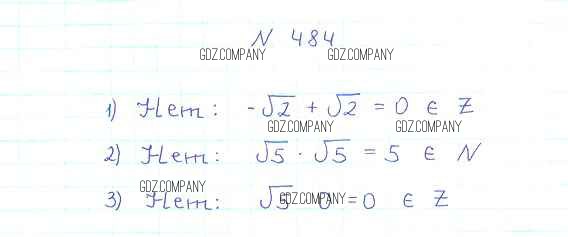 N 484
GDZ.COMPANY GDZ.COMPANY
1) Нет: -√2 + √2 = 0 ∈ Z
GDZ.COMPANY GDZ.COMPANY
2) Нет: √5 · √5 = 5 ∈ N
GDZ.COMPANY GDZ.COMPANY
3) Нет: √5 · 0 = 0 ∈ Z